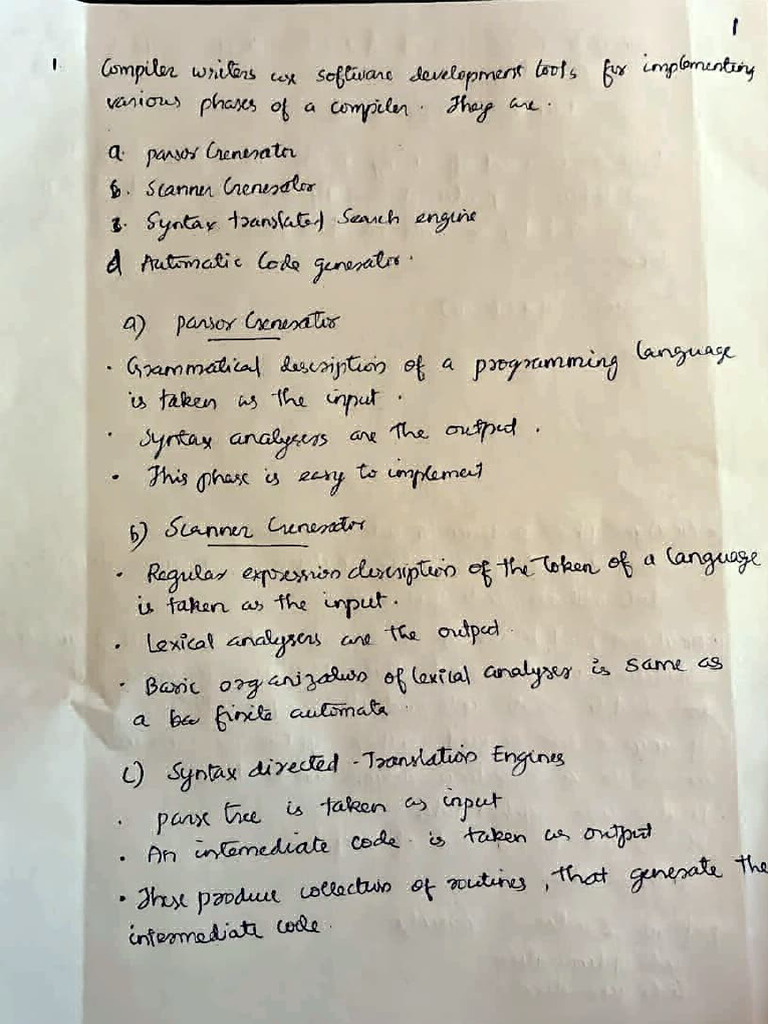 1
1 Compiler writers use software development tools for implementing
various phases of a compiler. They are.
a. parsor Generator
b. Scanner Generator
3. Syntax translated Search engine
d Automatic Code generator.
a) parsor Generator
· Grammatical description of a programming language
is taken as the input.
· Syntax analysers are the output.
· This phase is easy to implement
b) Scanner Generator
· Regular expression description of the Token of a language
is taken as the input.
· Lexical analysers are the output
· Basic organization of lexical analyser is same as
a finite automata
c) Syntax directed - Translation Engines
· parse tree is taken as input
· An intemediate code is taken as output
· These produce collection of routines, that generate the
intermediate code.